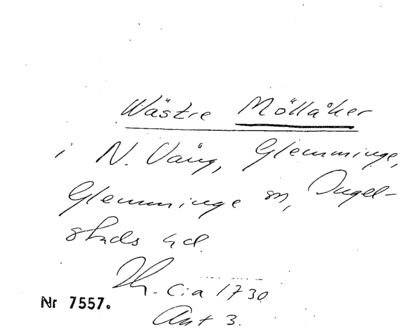 Wästre Möllåker
i N. Vång, Glemminge,
Glemminge sn, Ingel-
stads hd.
Th. c:a 1730
Nr 7557.
Ant 3.